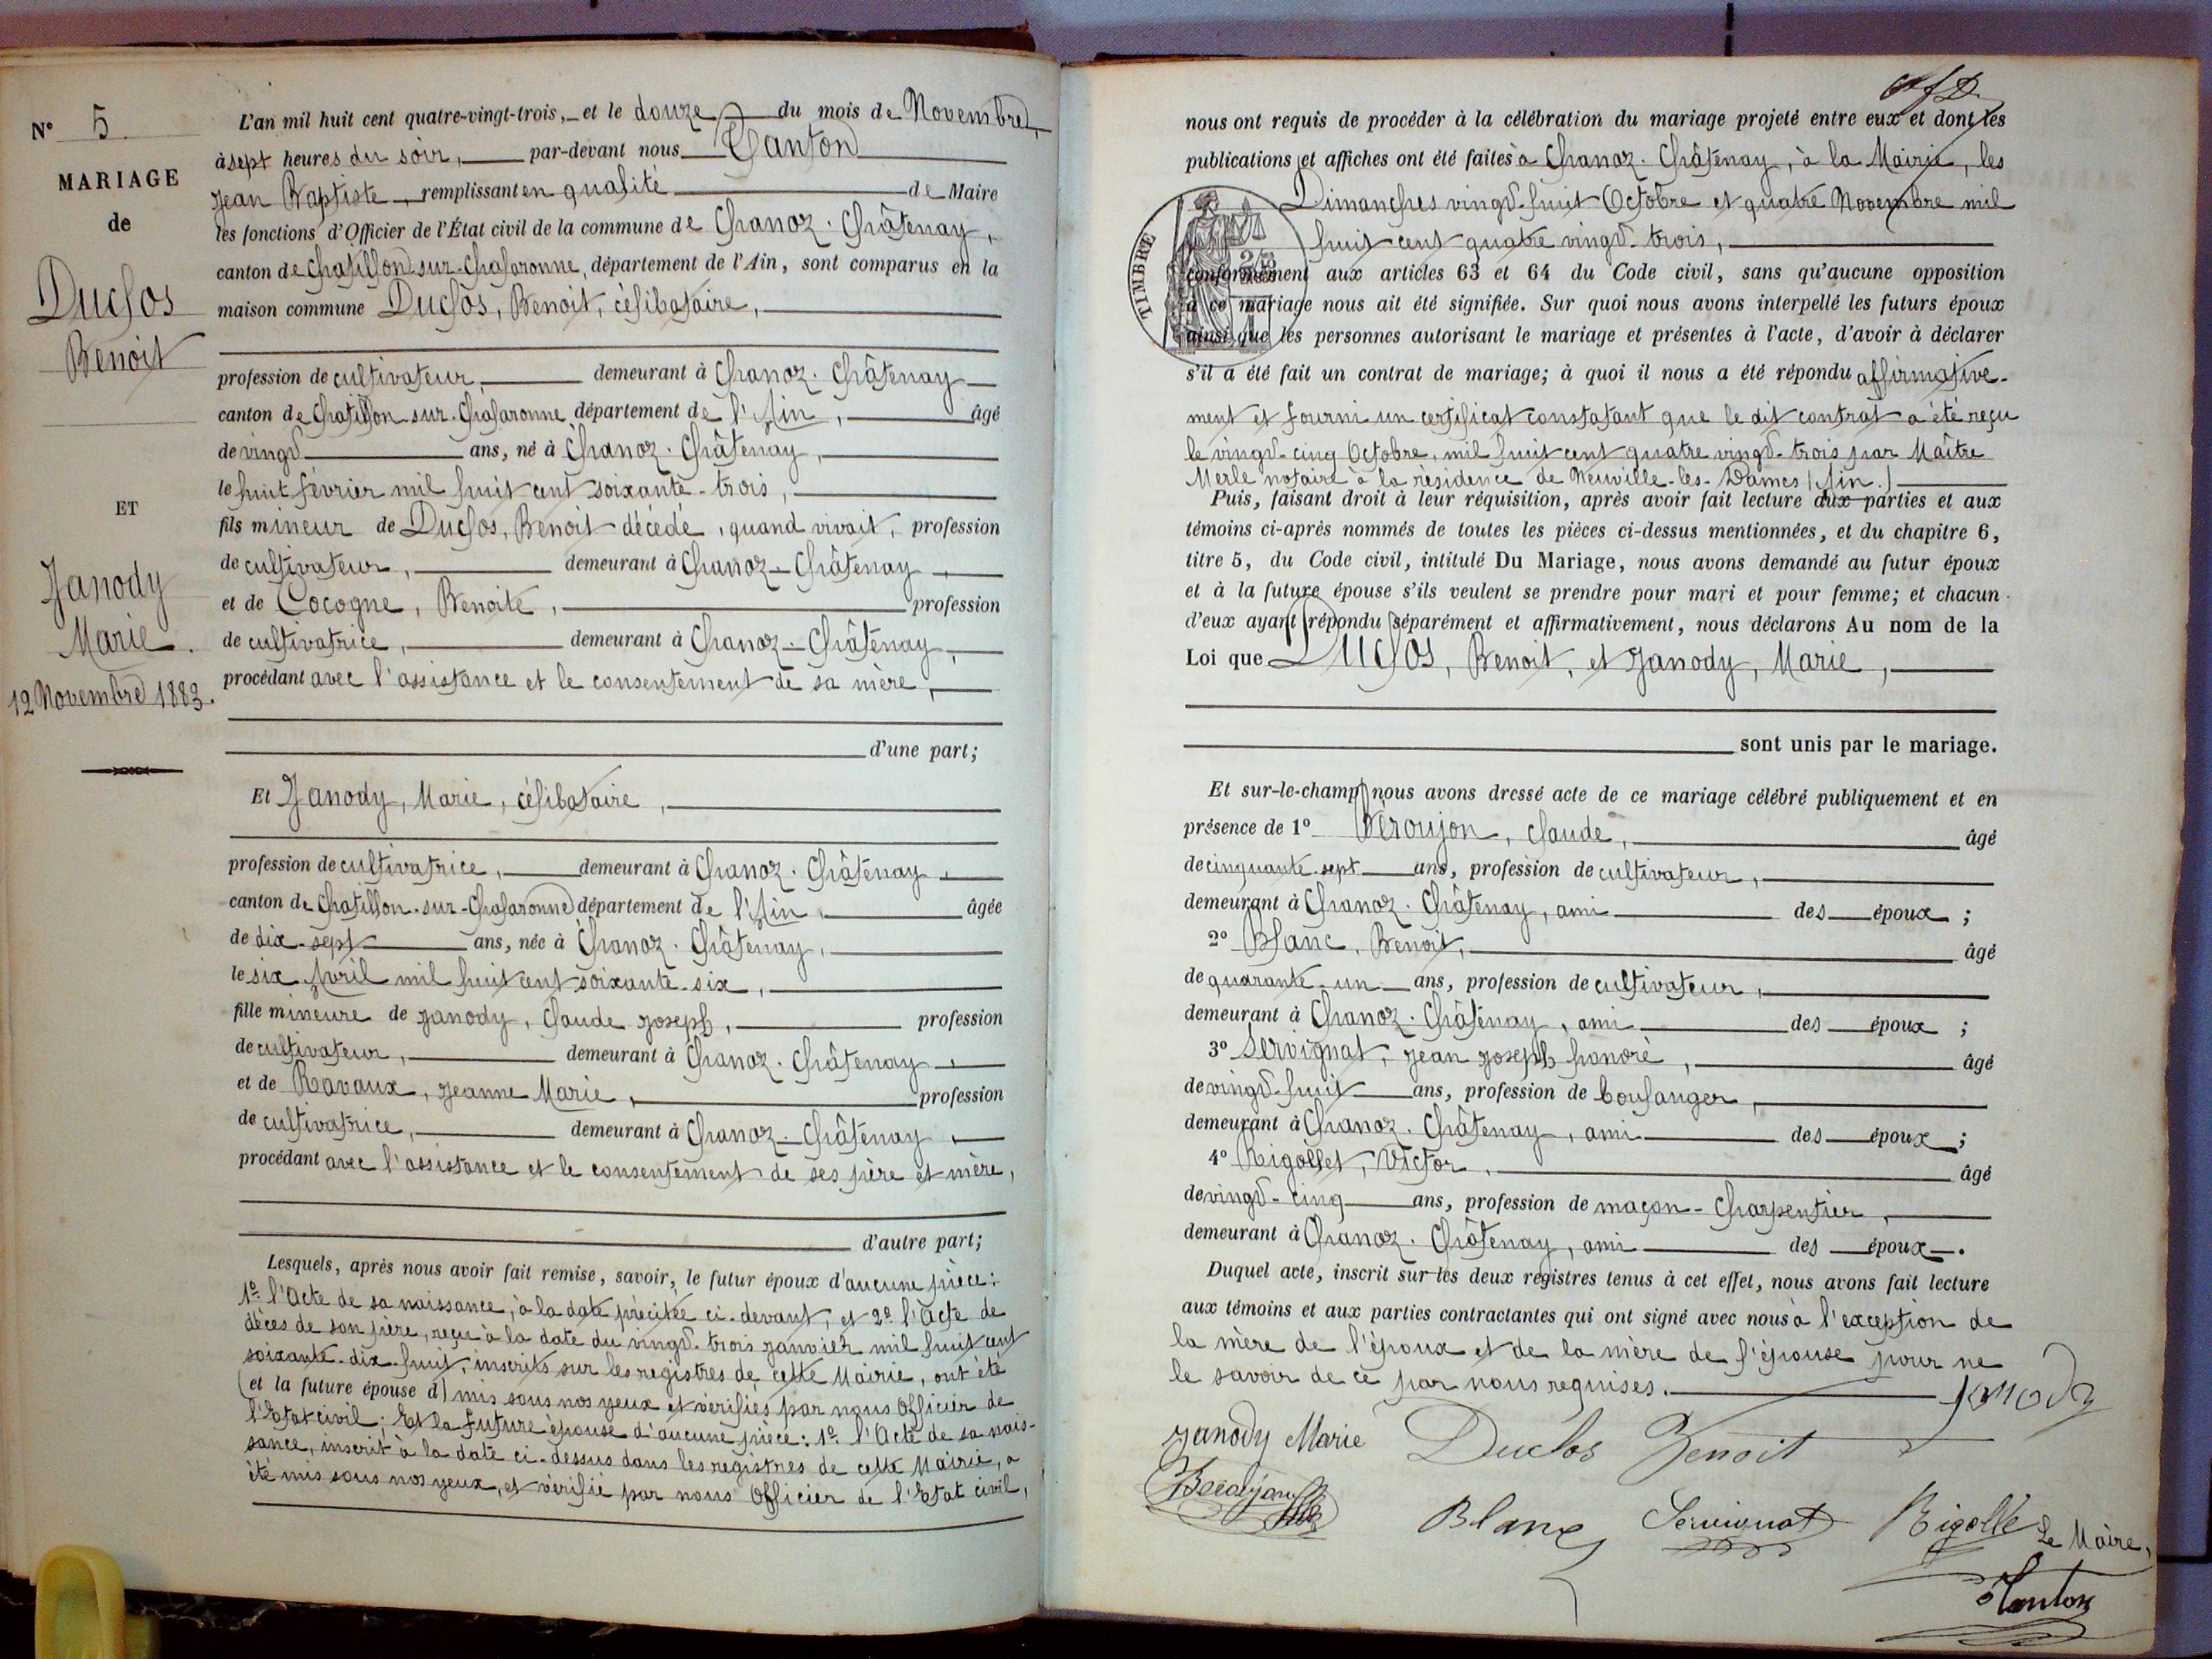 N° 5.
MARIAGE
de
Duclos
Benoit
ET
Janody
Marie.
12 Novembre 1883.
L'an mil huit cent quatre-vingt-trois, et le douze du mois de Novembre
à sept heures du soir, par-devant nous Tanton
Jean Baptiste, remplissant en qualité de Maire
les fonctions d'Officier de l'État civil de la commune de Chanoz-Châtenay,
canton de Chatillon-sur-Chalaronne, département de l'Ain, sont comparus en la
maison commune Duclos, Benoit, célibataire,
profession de cultivateur, demeurant à Chanoz-Châtenay
canton de Chatillon-sur-Chalaronne département de l'Ain, âgé
de vingt ans, né à Chanoz-Châtenay,
le huit février mil huit cent soixante-trois,
fils mineur de Duclos, Benoit décédé, quand vivait, profession
de cultivateur, demeurant à Chanoz-Châtenay,
et de Cocogne, Benoite, profession
de cultivatrice, demeurant à Chanoz-Châtenay,
procédant avec l'assistance et le consentement de sa mère,
d'une part;
Et Janody, Marie, célibataire,
profession de cultivatrice, demeurant à Chanoz-Châtenay,
canton de Chatillon-sur-Chalaronne département de l'Ain, âgée
de dix-sept ans, née à Chanoz-Châtenay,
le six Avril mil huit cent soixante-six,
fille mineure de Janody, Claude Joseph, profession
de cultivateur, demeurant à Chanoz-Châtenay,
et de Ravaux, Jeanne Marie, profession
de cultivatrice, demeurant à Chanoz-Châtenay,
procédant avec l'assistance et le consentement de ses père et mère,
d'autre part;
Lesquels, après nous avoir fait remise, savoir, le futur époux d'aucune pièce:
1° l'Acte de sa naissance, à la date précitée ci-devant, et 2° l'Acte de
décès de son père, reçu à la date du vingt-trois janvier mil huit cent
soixante-dix-huit, inscrits sur les registres de cette Mairie, ont été
(et la future épouse d) mis sous nos yeux et vérifiés par nous Officier de
l'Etat civil; Et la future épouse d'aucune pièce: 1° l'Acte de sa nais-
sance, inscrit à la date ci-dessus dans les registres de cette Mairie, a
été mis sous nos yeux, et vérifié par nous Officier de l'Etat civil,
nous ont requis de procéder à la célébration du mariage projeté entre eux et dont les
publications et affiches ont été faites à Chanoz-Châtenay, à la Mairie, les
Dimanches vingt-huit Octobre et quatre Novembre mil
huit cent quatre vingt-trois,
TIMBRE
conformément aux articles 63 et 64 du Code civil, sans qu'aucune opposition
à ce mariage nous ait été signifiée. Sur quoi nous avons interpellé les futurs époux
ainsi que les personnes autorisant le mariage et présentes à l'acte, d'avoir à déclarer
s'il a été fait un contrat de mariage; à quoi il nous a été répondu affirmative-
ment et fourni un certificat constatant que le dit contrat a été reçu
le vingt-cinq Octobre, mil huit cent quatre vingt-trois par Maître
Merle notaire à la résidence de Neuville-les-Dames (Ain.)
Puis, faisant droit à leur réquisition, après avoir fait lecture aux parties et aux
témoins ci-après nommés de toutes les pièces ci-dessus mentionnées, et du chapitre 6,
titre 5, du Code civil, intitulé Du Mariage, nous avons demandé au futur époux
et à la future épouse s'ils veulent se prendre pour mari et pour femme; et chacun
d'eux ayant répondu séparément et affirmativement, nous déclarons Au nom de la
Loi que Duclos, Benoit, et Janody, Marie,
sont unis par le mariage.
Et sur-le-champ nous avons dressé acte de ce mariage célébré publiquement et en
présence de 1° Béroujon, Claude, âgé
de cinquante-sept ans, profession de cultivateur,
demeurant à Chanoz-Châtenay, ami des époux;
2° Blanc, Benoit, âgé
de quarante-un ans, profession de cultivateur,
demeurant à Chanoz-Châtenay, ami des époux;
3° Servignat, Jean Joseph honoré, âgé
de vingt-huit ans, profession de boulanger,
demeurant à Chanoz-Châtenay, ami des époux;
4° Rigollet, Victor, âgé
de vingt-cinq ans, profession de maçon-Charpentier,
demeurant à Chanoz-Châtenay, ami des époux.
Duquel acte, inscrit sur les deux registres tenus à cet effet, nous avons fait lecture
aux témoins et aux parties contractantes qui ont signé avec nous à l'exception de
la mère de l'époux et de la mère de l'épouse pour ne
le savoir de ce par nous requises.
Janody
Janody Marie Duclos Benoit
Beroujon
Blanc Servignat Rigollé Le Maire,
Tanton